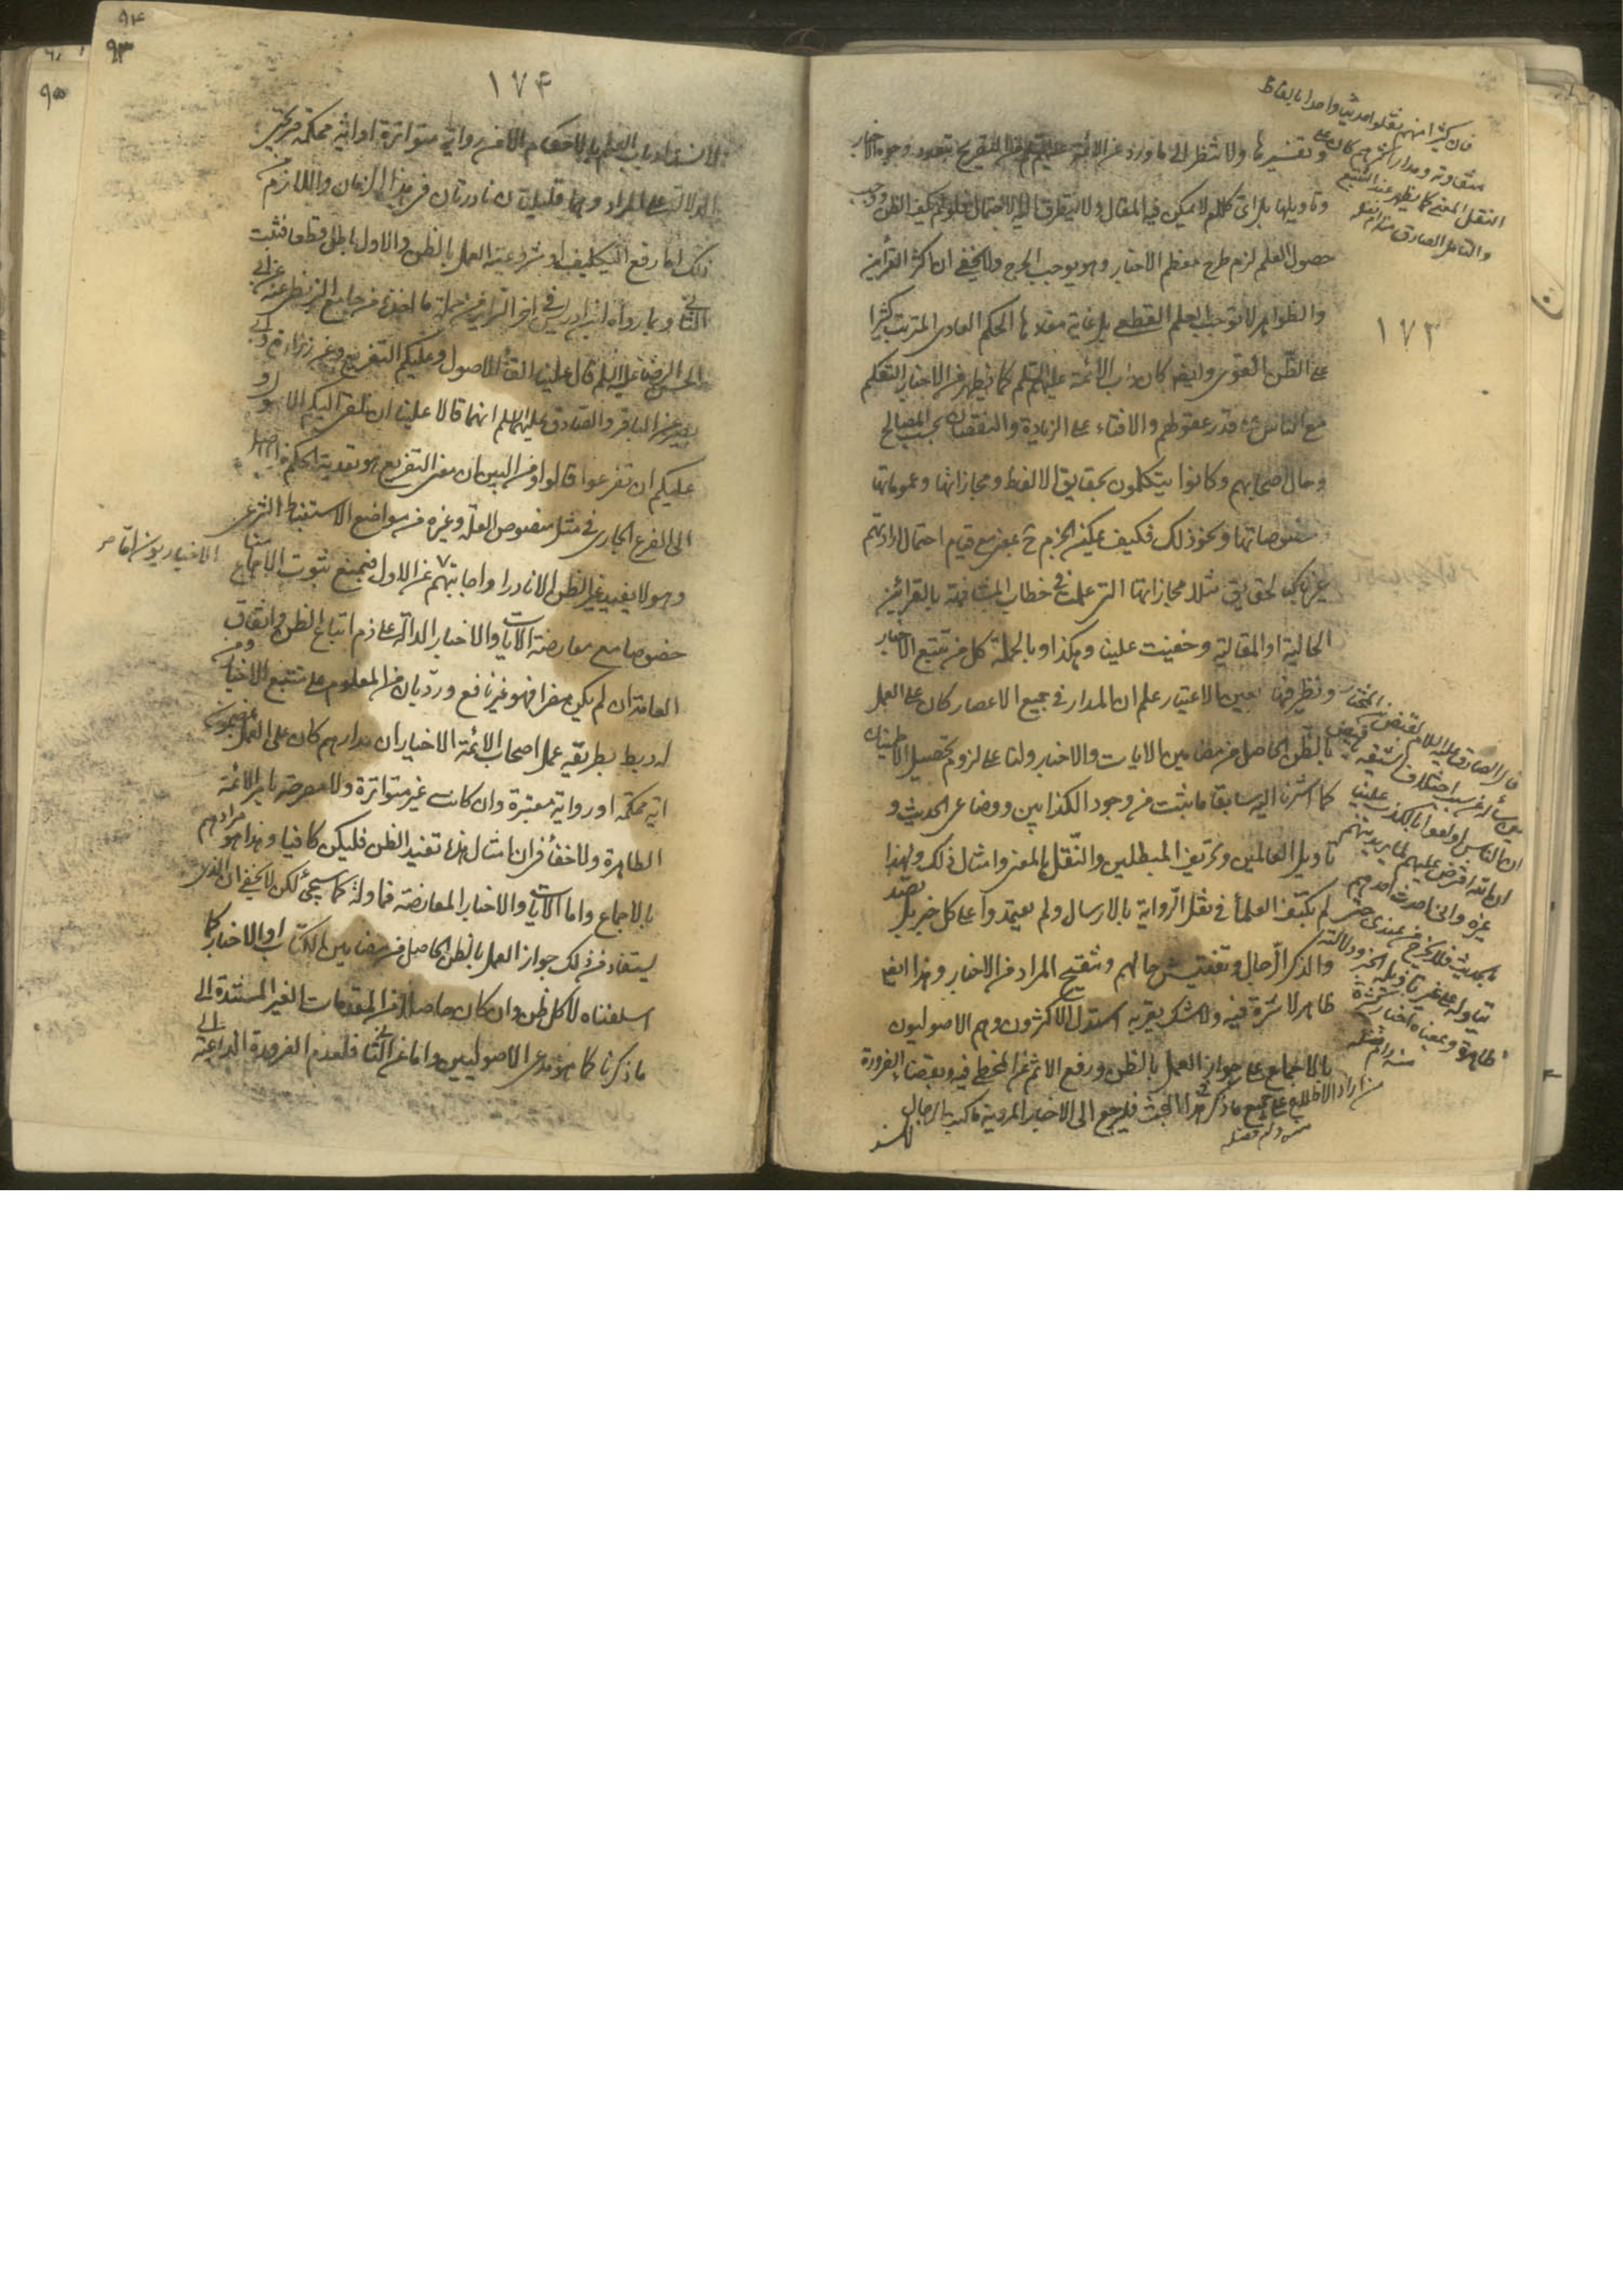 ١٧٣
وتفسيرها ولا تنظر الى ما ورد عن الائمة عليهم من التصريح بتعدد وجوه الاخبار
وتاويلها بل اى كلام لا يمكن فى المقال ولا يتطرق اليه الاحتمال فلو لم يكف الظن ووجب
حصول العلم لزم طرح معظم الاخبار وهو يوجب الحرج ولا يخفى ان اكثر القرائن
والظواهر لا توجب العلم القطعى بل غاية مفادها الحكم العادى المترتب كثيرا
على الظن القوى وايضا كان داب الائمة عليهم السلم كما يظهر من الاخبار التكلم
مع الناس على قدر عقولهم والافتاء على الزيادة والنقصان بحسب المصالح
وحال اصحابهم وكانوا يتكلمون بحقايق الالفاظ ومجازاتها وعموماتها
وخصوصاتها ونحو ذلك فكيف يمكن الجزم ح بمعنى مع قيام احتمال ارادتهم
غيرها كالحقايق مثلا ومجازاتها التى علمت فى خطاب المشافهة بالقرائن
الحالية او المقالية وخفيت علينا وهكذا وبالجملة كل من تتبع الاخبار
ونظر فيها بعين الاعتبار علم ان المدار فى جميع الاعصار كان على العمل
بالظن الحاصل من مضامين الايات والاخبار ولنا على لزوم تحصيل الاطمينان
كما اشرنا اليه سابقا ما ثبت من وجود الكذابين ووضاعى الحديث و
تاويل الغالين وتحريف المبطلين والنقل بالمعنى وامثال ذلك ولهذا
لم يكتف العلماء فى نقل الرواية بالارسال ولم يعتمدوا على كل خبر بل
والذكر الرجال وتفتيش حالهم وتنقيح المراد من الاخبار وهذا ايضا
ظاهر لا سترة فيه ولا شك يعتريه استدل الاكثرون وهم الاصوليون
بالاجماع على جواز العمل بالظن ورفع الاثم عن المخطى فيه وبقضاء الضرورة
فان كثيرا منهم نقلوا حديثا واحدا بالفاظ
متفاوتة ومدار اكثرهم كان على
النقل بالمعنى كما يظهر عند التتبع
والتامل الصادق منه دام فضله
قال الصادق عليه السلام لفيض بن المختار
حين سأله عن سبب اختلاف الشيعة
ان الناس اولعوا بالكذب علينا
ان الله افترض عليهم لا يريد منهم
غيره وانى احدث احدهم
بالحديث فلا يخرج من عندى حتى
يتاوله على غير تاويله الخبر ودلالته
ظاهرة وبمعناه اخبار كثيرة
منه دام فضله
من اراد الاطلاع على جميع ما ذكر فى هذا المبحث فليرجع الى الاخبار المروية فى كتب الرجال
منه دام فضله
١٧٤
لانسداد باب العلم بالاحكام الا من رواية متواترة او اية محكمة
الدلالة على المراد وهما قليلتان نادرتان فى هذا الزمان واللازم من
ذلك اما رفع التكليف او شرعية العمل بالظن والاول باطل قطعا فثبت
الثانى وبما رواه ابن ادريس فى اخر السرائر من جملة ما اخذه من جامع البزنطى عنه عن ابى
الحسن الرضا عليه السلم قال علينا القاء الاصول وعليكم التفريع وعن زرارة وابى
بصير عن الباقر والصادق عليهما السلم انهما قالا علينا ان نلقى اليكم الاصول و
عليكم ان تفرعوا قالوا ومن البين ان معنى التفريع هو تعدية الحكم من اصله
الى الفرع الجارى فى مثل منصوص العلة وغيره من مواضع الاستنباط الشرعى
وهو لا يفيد غير الظن الا نادرا واجابتهم عن الاول فبمنع ثبوت الاجماع
خصوصا مع معارضة الايات والاخبار الدالة على ذم اتباع الظن واتفاق
العامة ان لم يكن مضرا فهو غير نافع ورد بان من المعلوم على متتبع الاخبار ومن
له ربط بطريقة عمل اصحاب الائمة الاخيار ان مدارهم كان على العمل بمضمون
اية محكمة او رواية معتبرة وان كانت غير متواترة ولا معروضة بامر الائمة
الطاهرة ولا خفاء فى ان امثال هذا تفيد الظن فليكن كافيا وهذا هو مرادهم
بالاجماع واما الايات والاخبار المعارضة فماولة كما سيجئ لكن لا يخفى ان الذى
يستفاد من ذلك جواز العمل بالظن الحاصل من مضامين الكتاب او الاخبار كما
اسلفناه لا كل ظن وان كان حاصلا من المقدمات الغير المستندة الى
ما ذكرنا كما هو مدعى الاصوليين واما عن الثانى فلعدم الضرورة الداعية الى
الاخباريون اما
٩٤
٩٣
٩٥